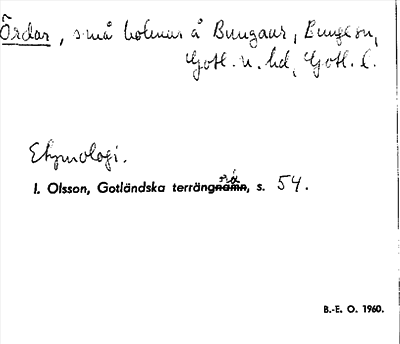 Ördar, små holmar å Bungaur, Bunge sn,
Gotl. n. hd, Gotl. l.
Etymologi.
I. Olsson, Gotländska terrängnamn, s. 54.
B.-E. O. 1960.